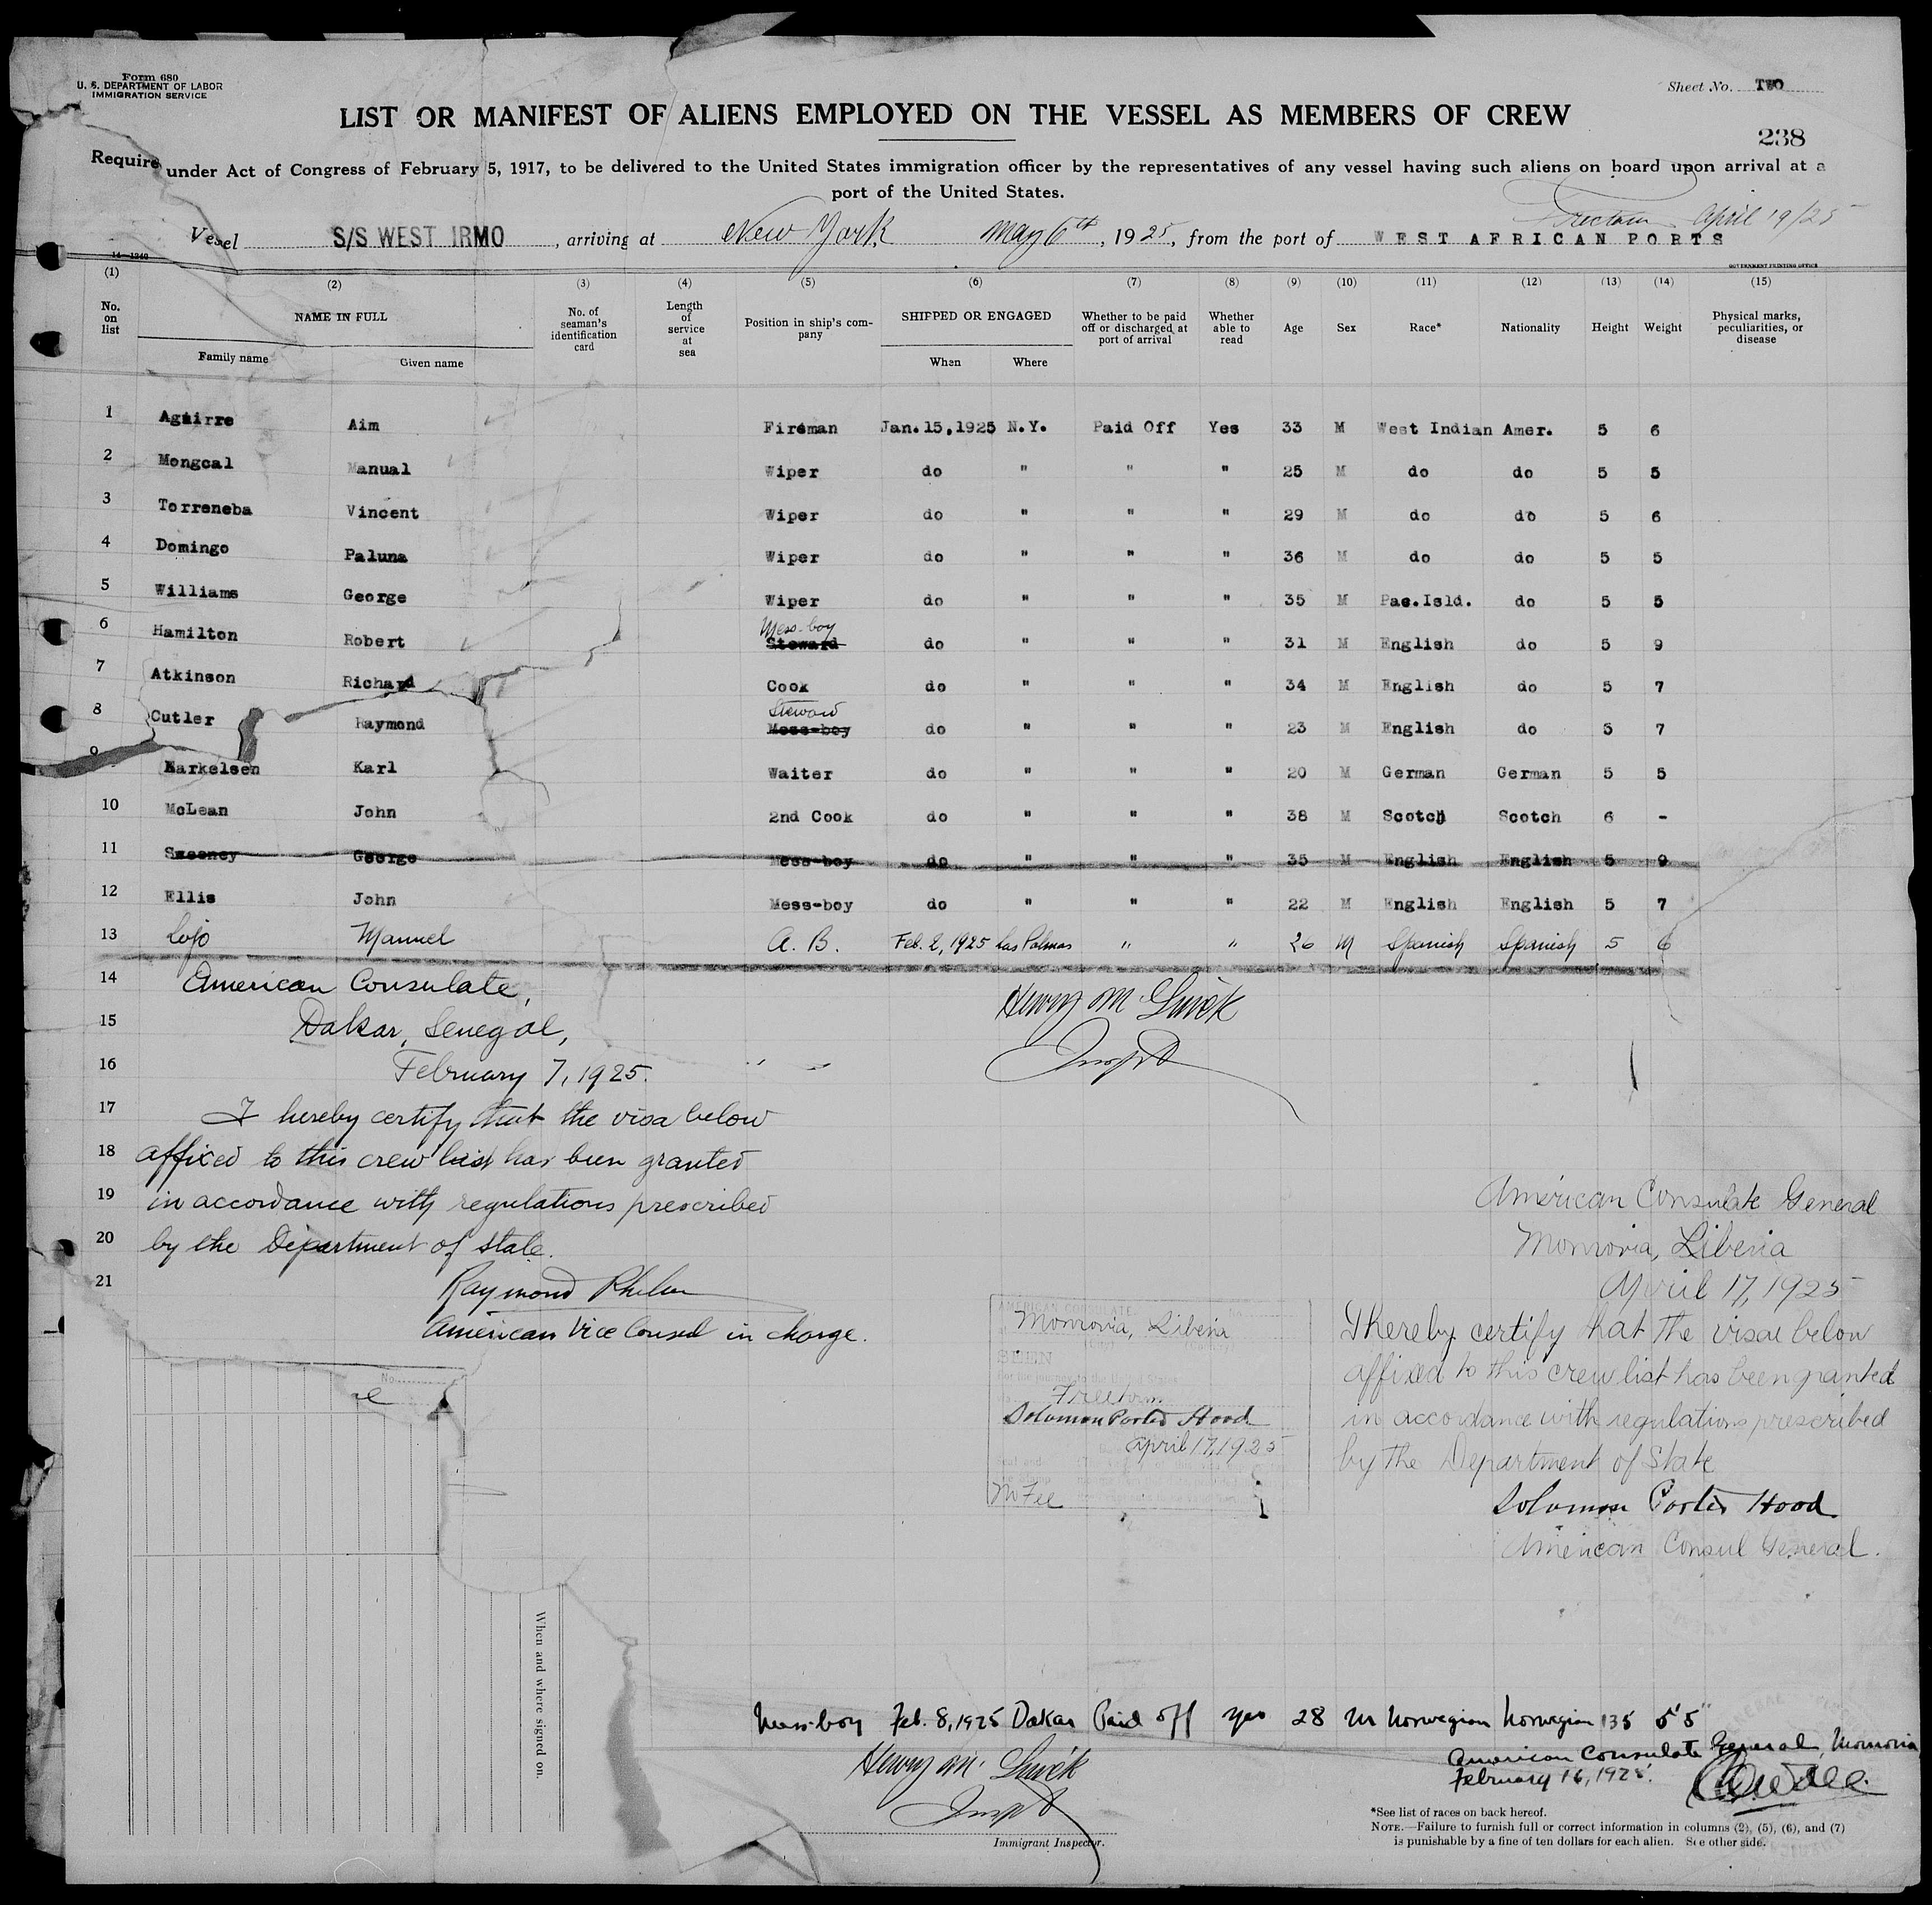 Form 680
U. S. DEPARTMENT OF LABOR
IMMIGRATION SERVICE
Sheet No. TWO
LIST OR MANIFEST OF ALIENS EMPLOYED ON THE VESSEL AS MEMBERS OF CREW
238
Require under Act of Congress of February 5, 1917, to be delivered to the United States immigration officer by the representatives of any vessel having such aliens on board upon arrival at a
port of the United States.
April 19/25
Vessel S/S WEST IRMO, arriving at New York May 6th, 1925, from the port of WEST AFRICAN PORTS
14—1240
GOVERNMENT PRINTING OFFICE
(1) (2) (3) (4) (5) (6) (7) (8) (9) (10) (11) (12) (13) (14) (15)
No. on list NAME IN FULL Family name Given name No. of seaman's identification card Length of service at sea Position in ship's company SHIPPED OR ENGAGED When Where Whether to be paid off or discharged at port of arrival Whether able to read Age Sex Race* Nationality Height Weight Physical marks, peculiarities, or disease
1 Aguirre Aim Fireman Jan.15,1925 N.Y. Paid Off Yes 33 M West Indian Amer. 5 6
2 Mongcal Manual Wiper do " " " 25 M do do 5 5
3 Torreneba Vincent Wiper do " " " 29 M do do 5 6
4 Domingo Paluna Wiper do " " " 36 M do do 5 5
5 Williams George Wiper do " " " 35 M Pac.Isld. do 5 5
6 Hamilton Robert Mess-boy Steward do " " " 31 M English do 5 9
7 Atkinson Richard Cook do " " " 34 M English do 5 7
8 Cutler Raymond Steward Mess-boy do " " " 23 M English do 5 7
9 Karl Waiter do " " " 20 M German German 5 5
10 McLean John 2nd Cook do " " " 38 M Scotch Scotch 6 -
11 Sweeney George Mess-boy do " " " 35 M English English 5 9
12 Ellis John Mess-boy do " " " 22 M English English 5 7
13 Lojo Manuel A. B. Feb. 2, 1925 Las Palmas " " 26 M Spanish Spanish 5 6
14 American Consulate,
15 Dakar, Senegal,
16 February 7, 1925.
17 I hereby certify that the visa below
18 affixed to this crew list has been granted
19 in accordance with regulations prescribed
20 by the Department of State.
21 Raymond Phelan
American Vice Consul in charge.
Henry M.
Inspt
American Consulate General
Monrovia, Liberia
April 17, 1925
I hereby certify that the visae below
affixed to this crew list has been granted
in accordance with regulations prescribed
by the Department of State
Solomon Porter Hood
American Consul General.
AMERICAN CONSULATE
Monrovia, Liberia
SEEN
For the journey to the United States
Freetown
Solomon Porter Hood
April 17, 1925
No Fee
No.
When and where signed on.
Mess-boy Feb. 8, 1925 Dakar Paid off yes 28 M Norwegian Norwegian 135 5'5"
Henry M.
Inspt
Immigrant Inspector.
American Consulate General, Monrovia
February 16, 1925.
*See list of races on back hereof.
NOTE.—Failure to furnish full or correct information in columns (2), (5), (6), and (7)
is punishable by a fine of ten dollars for each alien. See other side.